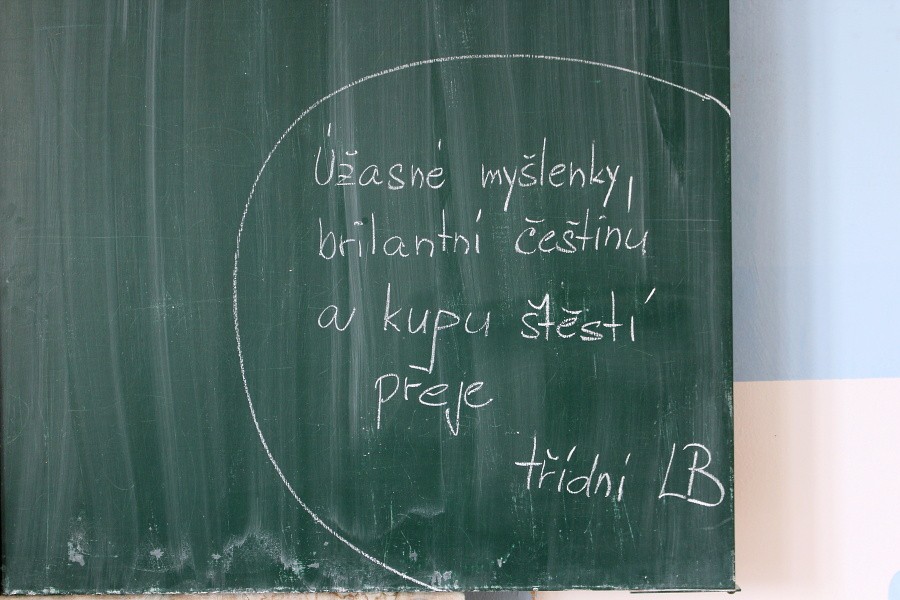 Úžasné myšlenky,
brilantní češtinu
a kupu štěstí
přeje
třídní LB